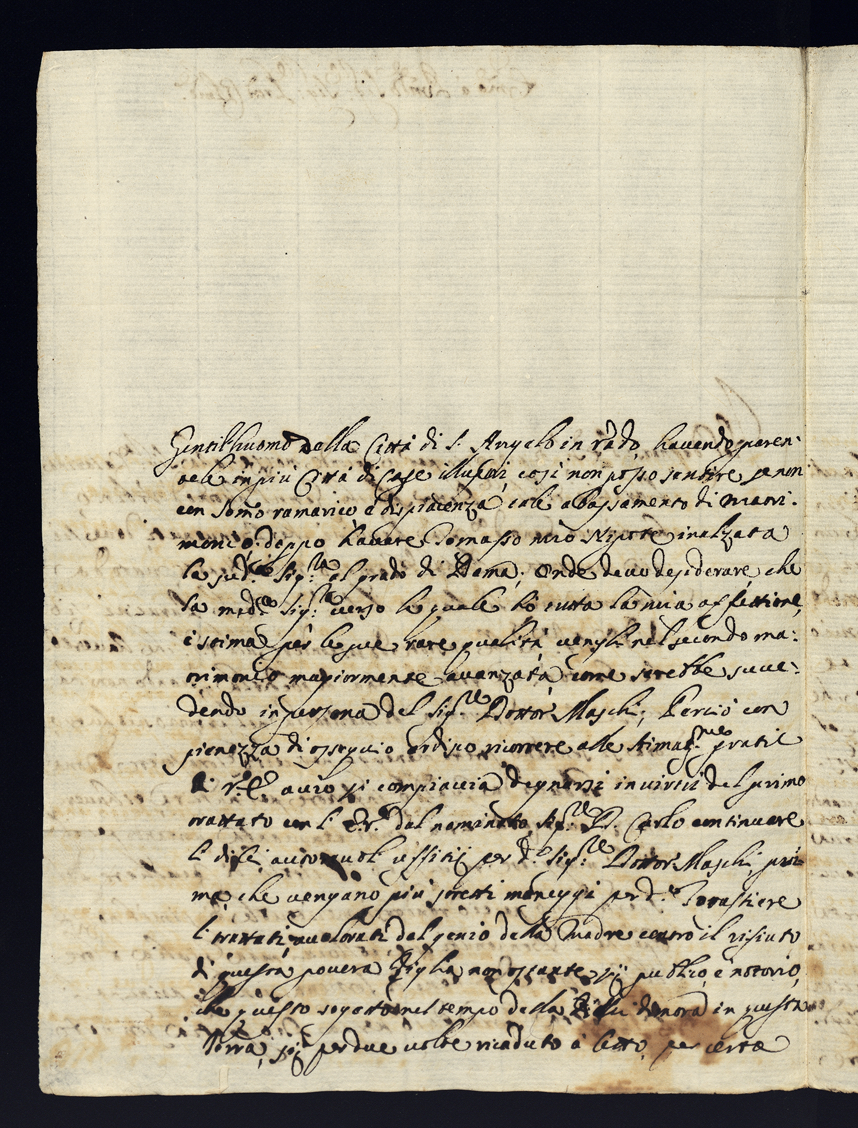 Gentilhuomo della Città di S. Angelo in vado, havendo paren:
tele in più Città di Case illustri, così non posso sentire se non
con somo ramarico e dispiacenza tale abbassamento di matri:
monio, doppo havere Tomasso mio Nipote inalzata
la sud.ta Sig.ra al grado di Dama, Onde devo desiderare, che
la med.ma Sig.ra verso la quale hò tutta la mia affettione,
e stima per le sue rare qualità venghi nel secondo ma:
trimonio magiormente avanzata come sarebbe succe:
dendo in persona del Sig.re Dottor Maschi; Perciò con
pienezza di ossequio ardisco ricorrere alle stimatis.me gratie
di V.E. acciò si compiaccia degnarsi in virtù del primo
trattato con l' del nominato Sig.re D. Carlo continuare
li di lei autorevoli uffitij per d.o Sig.re Dottor Maschi, pri:
ma, che vengano più stretti maneggi per d.o Forastiere
li trattati, avalorati dal genio della Madre contro il rifiuto
di questa povera figlia, non ostante sij publico, e notorio,
che questo sogetto nel tempo della di lui dimora in questa
Terra, sij per due volte ricaduto à letto, per certa